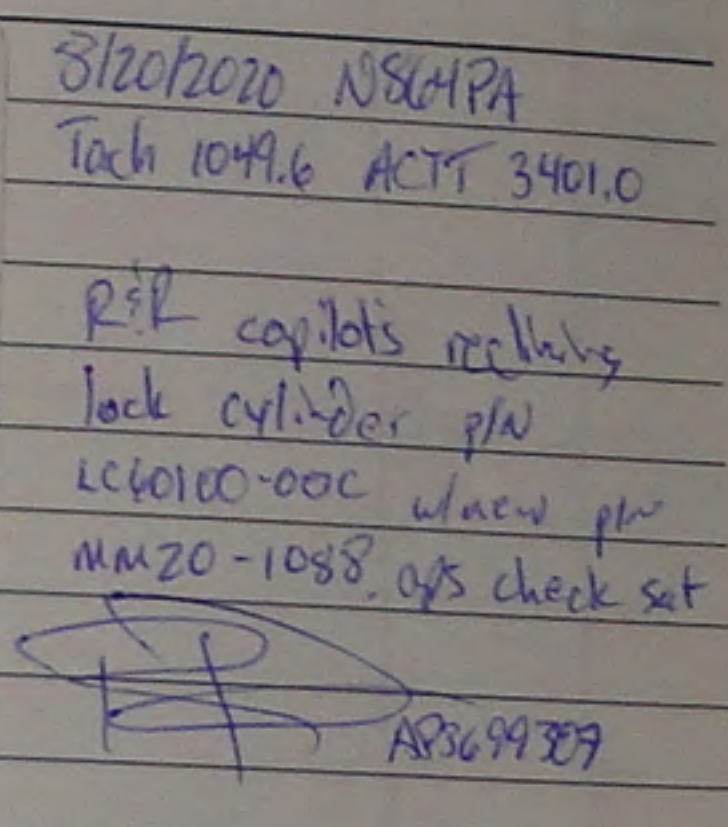 8/20/2020 N864PA
Tach 1049.6 ACTT 3401.0
R&R copilots reclining
lock cylinder p/N
LC60100-00C w/new p/n
MM20-1088. ops check sat
AP3699309